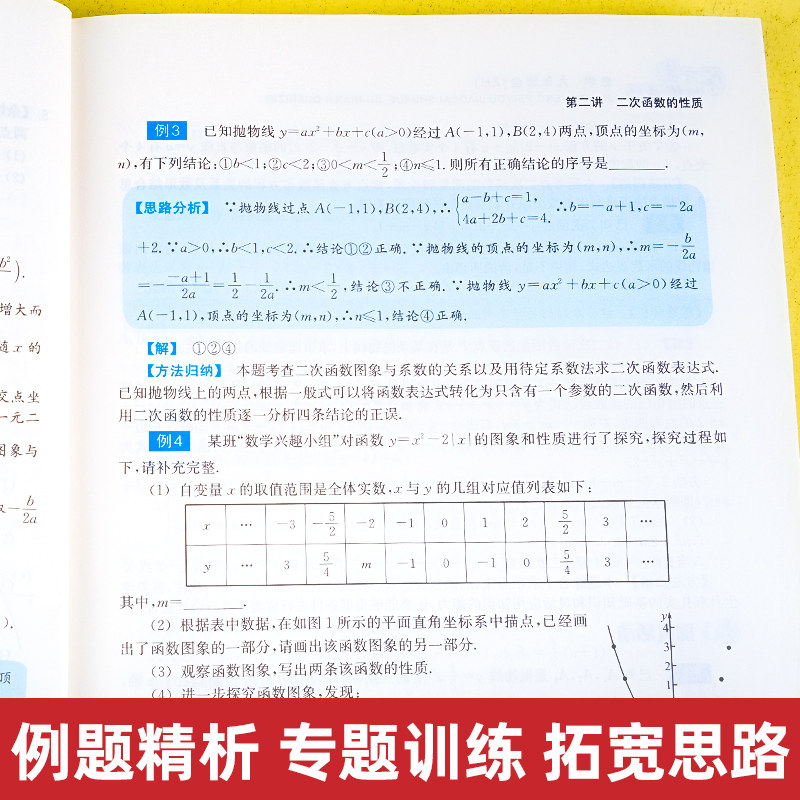 b²
增大而
随 x 的
交点坐
一元二
图象与
-b/2a
).
项
第二讲 二次函数的性质
例3 已知抛物线 y=ax²+bx+c(a>0)经过 A(-1,1),B(2,4)两点,顶点的坐标为(m,
n),有下列结论:①b<1;②c<2;③0<m<1/2;④n≤1.则所有正确结论的序号是________.
【思路分析】 ∵抛物线过点 A(-1,1),B(2,4),∴{a-b+c=1, 4a+2b+c=4. ∴b=-a+1,c=-2a
+2.∵a>0,∴b<1,c<2.∴结论①②正确.∵抛物线的顶点的坐标为(m,n),∴m=-b/2a
=-(-a+1)/2a=1/2-1/2a.∴m<1/2,结论③不正确.∵抛物线 y=ax²+bx+c(a>0)经过
A(-1,1),顶点的坐标为(m,n),∴n≤1,结论④正确.
【解】 ①②④
【方法归纳】 本题考查二次函数图象与系数的关系以及用待定系数法求二次函数表达式.
已知抛物线上的两点,根据一般式可以将函数表达式转化为只含有一个参数的二次函数,然后利
用二次函数的性质逐一分析四条结论的正误.
例4 某班“数学兴趣小组”对函数 y=x²-2|x|的图象和性质进行了探究,探究过程如
下,请补充完整.
(1) 自变量 x 的取值范围是全体实数,x 与 y 的几组对应值列表如下:
x … -3 -5/2 -2 -1 0 1 2 5/2 3 …
y … 3 5/4 m -1 0 -1 0 5/4 3 …
其中,m=________.
(2) 根据表中数据,在如图1所示的平面直角坐标系中描点,已经画
出了函数图象的一部分,请画出该函数图象的另一部分.
(3) 观察函数图象,写出两条该函数的性质.
(4) 进一步探究函数图象,发现:
y
4
3
2
1
例题精析 专题训练 拓宽思路